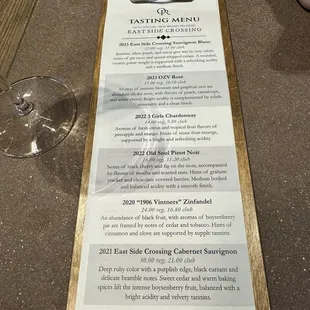 OR
TASTING MENU
EAST SIDE CROSSING
2023 East Side Crossing Sauvignon Blanc
Jasmine, white peach, and
and a medium finish.
2023 OZV Rosé
Aromas of
abundant on the nose, with flavors of peach,
and white cherry. Bright acidity is complemented by subtle
minerality and a clean finish.
2022 3 Girls Chardonnay
14.00 reg, 9.80 club
Aromas of fresh citrus and tropical fruit flavors of
pineapple and mango. Hints of stone fruit emerge,
supported by a bright and refreshing acidity.
2022 Old Soul Pinot Noir
16.00 reg, 11.20 club
Notes of black cherry and fig on the nose, accompanied
by flavors of mocha and toasted oats. Hints of graham
cracker and chocolate covered berries. Medium bodied
and balanced acidity with a smooth finish.
2020 "1906 Vintners" Zinfandel
24.00 reg, 16.80 club
An abundance of black fruit, with aromas of boysenberry
pie are framed by notes of cedar and tobacco. Hints of
cinnamon and clove are supported by supple tannins.
2021 East Side Crossing Cabernet Sauvignon
30.00 reg, 21.00 club
Deep ruby color with a purplish edge, black currant and
delicate bramble fruit. Sweet cedar and warm baking
spices lift the intense boysenberry fruit, balanced with a
bright acidity and velvety tannins.